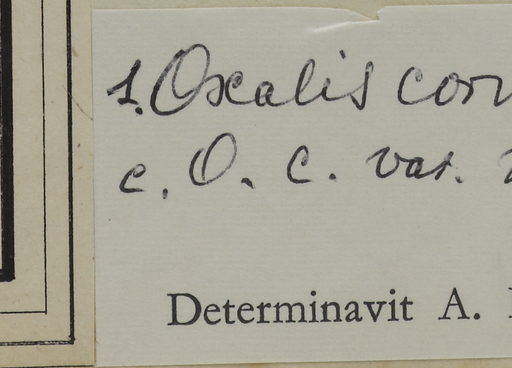 1. Oxalis corn
c. O. c. var.
Determinavit A.